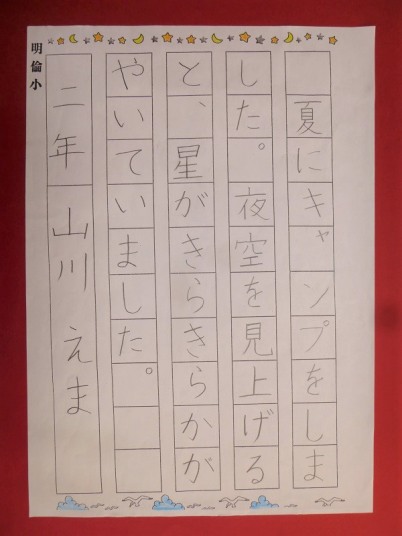 夏にキャンプをしま
した。夜空を見上げる
と、星がきらきらかが
やいていました。
二年 山川 えま
明倫小